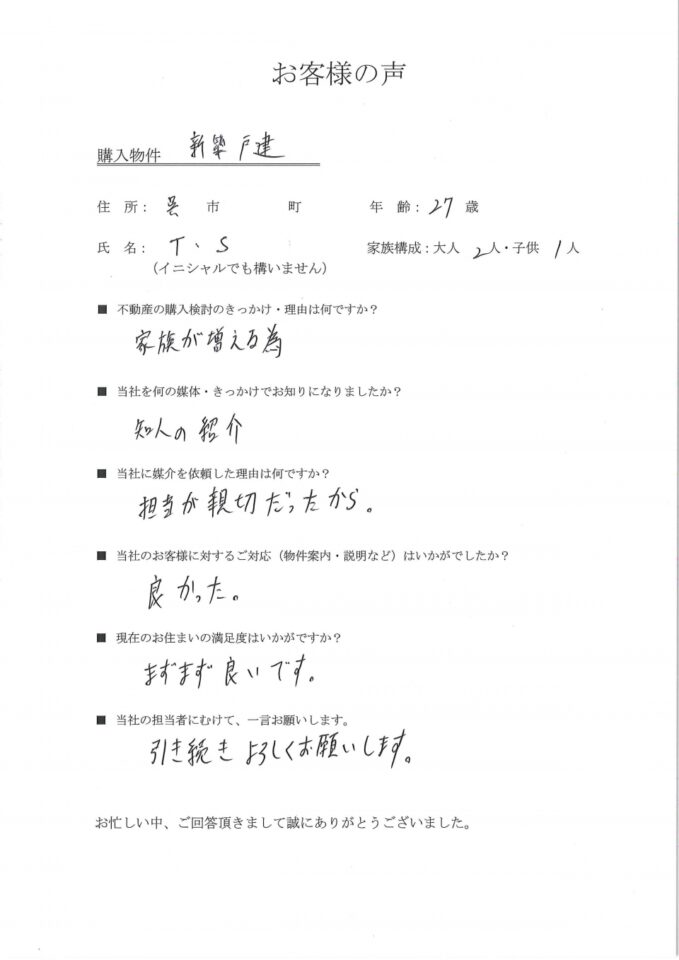 お客様の声
購入物件 新築戸建
住 所： 呉 市 町 年 齢： 27 歳
氏 名： T、S 家族構成：大人 2人・子供 1人
（イニシャルでも構いません）
■ 不動産の購入検討のきっかけ・理由は何ですか？
家族が増える為
■ 当社を何の媒体・きっかけでお知りになりましたか？
知人の紹介
■ 当社に媒介を依頼した理由は何ですか？
担当が親切だったから。
■ 当社のお客様に対するご対応（物件案内・説明など）はいかがでしたか？
良かった。
■ 現在のお住まいの満足度はいかがですか？
まずまず良いです。
■ 当社の担当者にむけて、一言お願いします。
引き続きよろしくお願いします。
お忙しい中、ご回答頂きまして誠にありがとうございました。